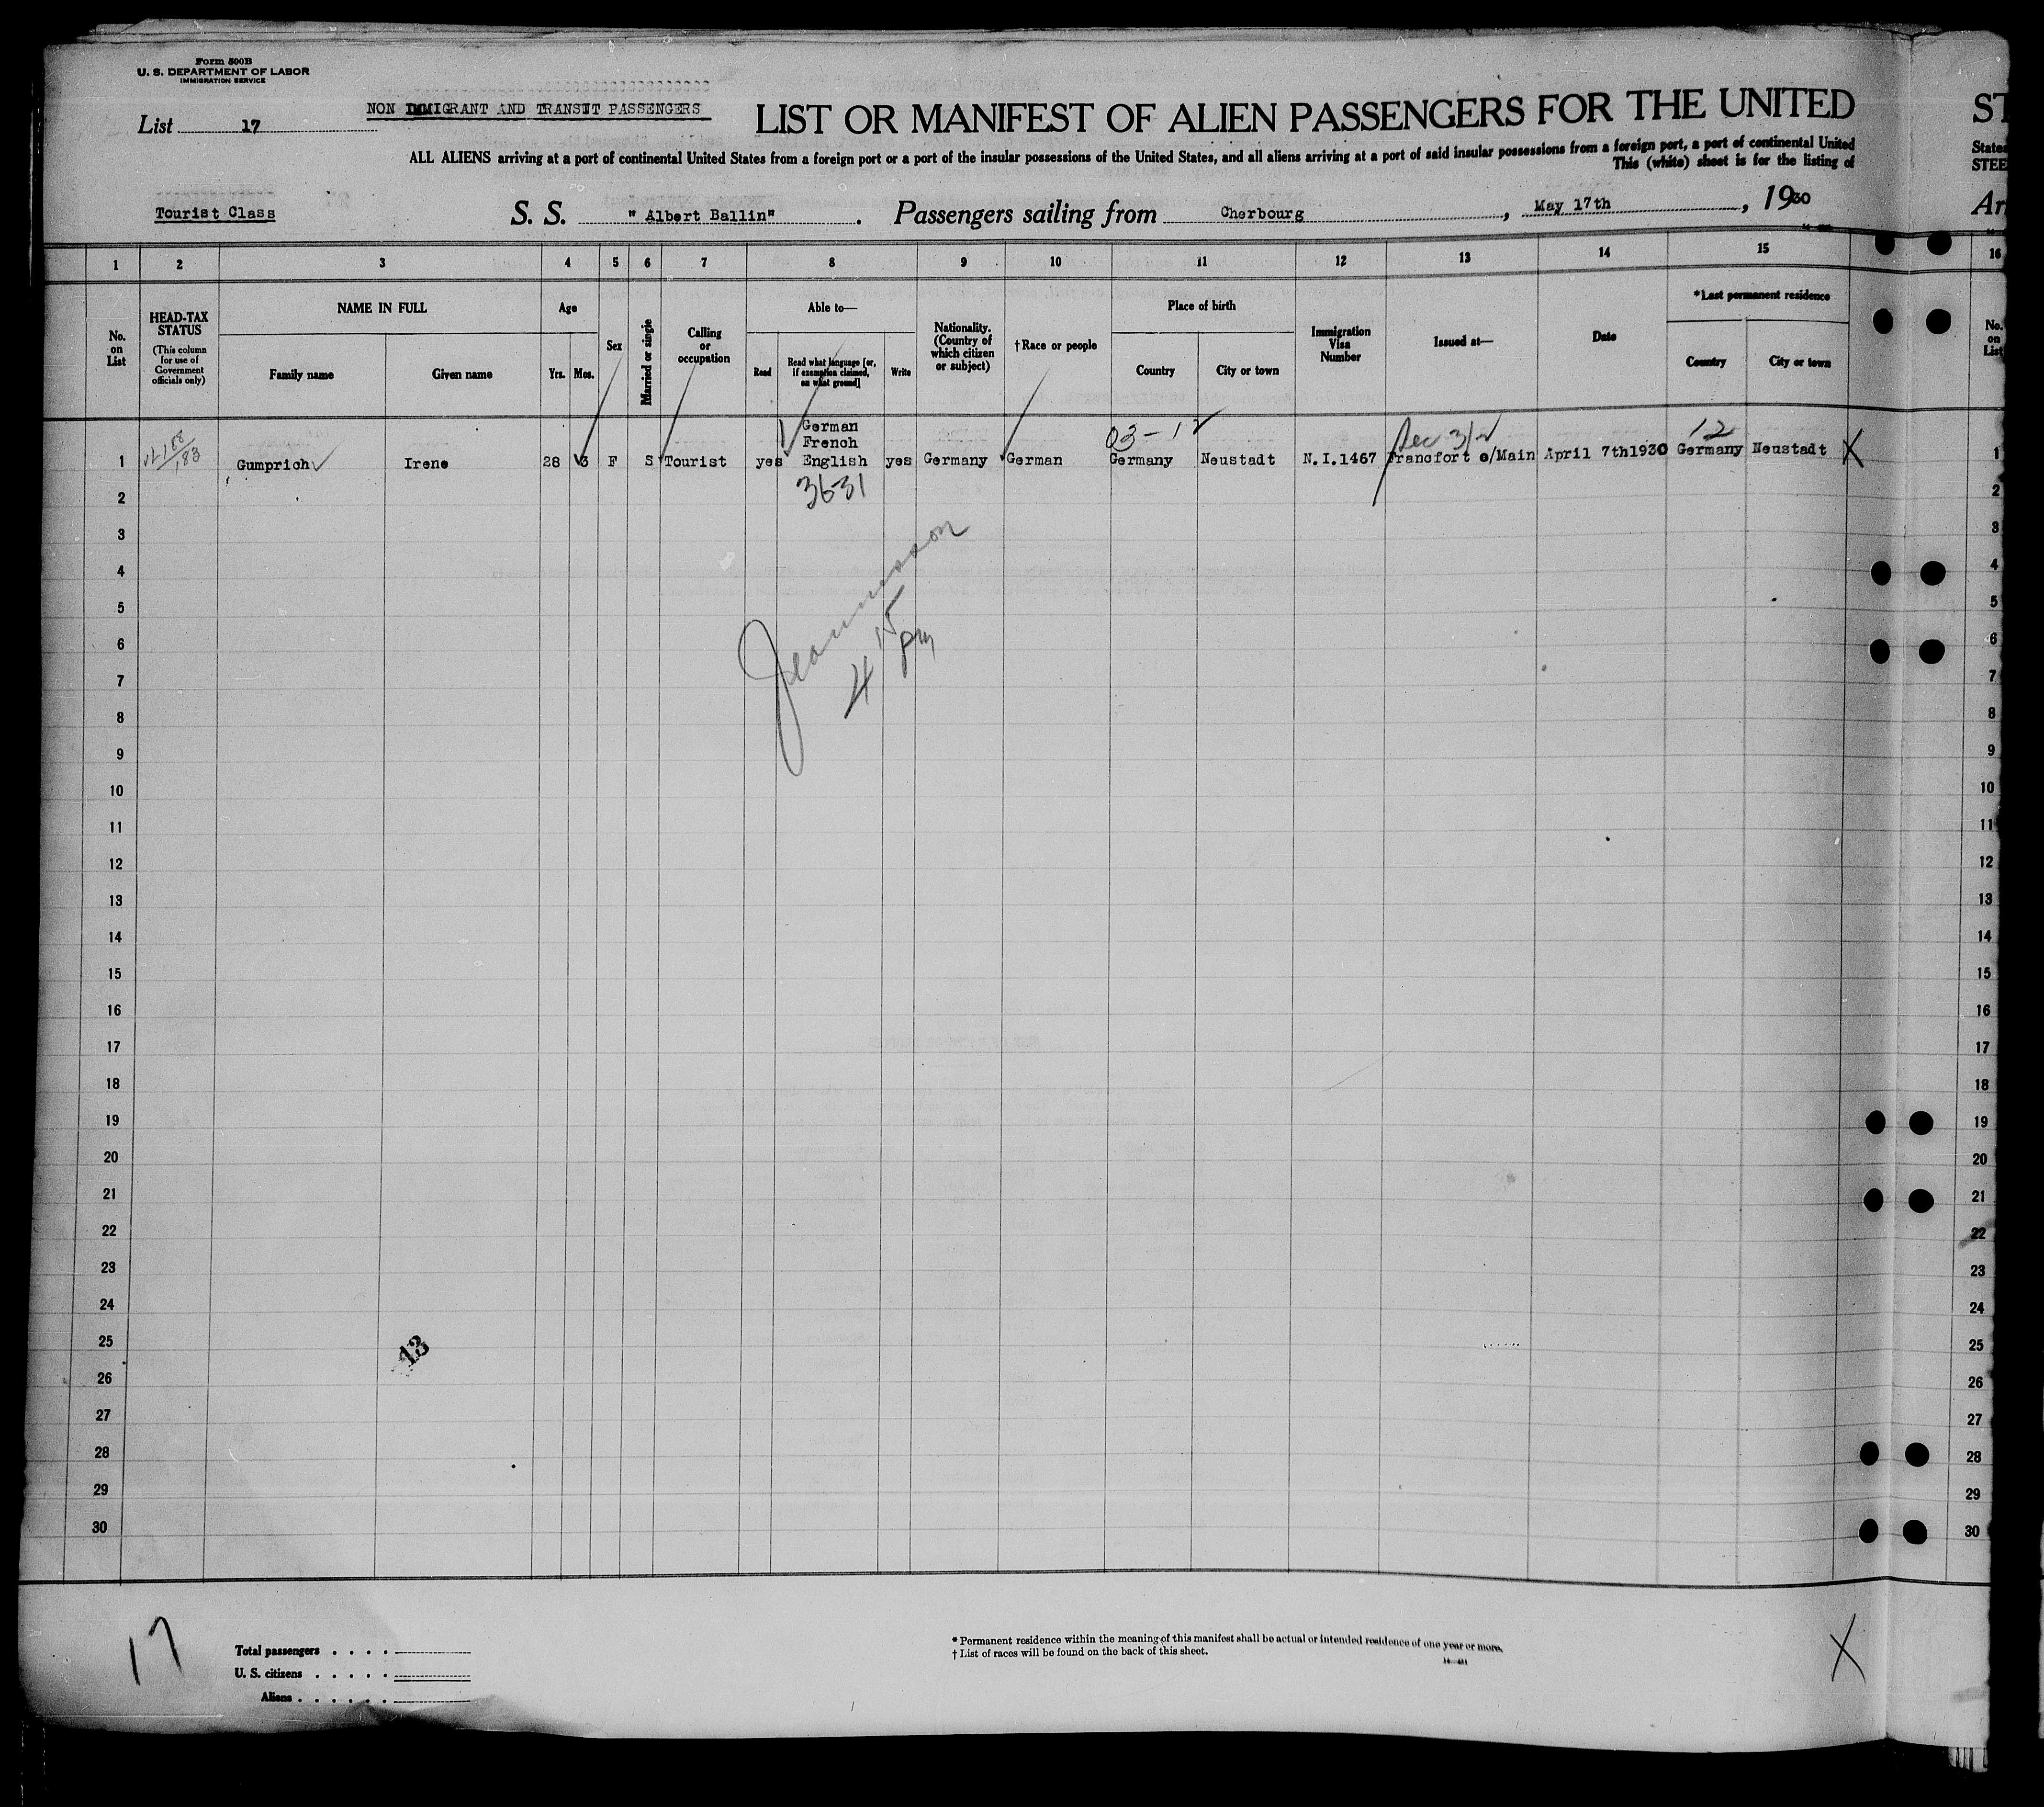 Form 500B
U. S. DEPARTMENT OF LABOR
IMMIGRATION SERVICE
NON IMMIGRANT AND TRANSIT PASSENGERS
LIST OR MANIFEST OF ALIEN PASSENGERS FOR THE UNITED
ST
List 17
ALL ALIENS arriving at a port of continental United States from a foreign port or a port of the insular possessions of the United States, and all aliens arriving at a port of said insular possessions from a foreign port, a port of continental United
States
This (white) sheet is for the listing of
STEE
Tourist Class
S. S. " Albert Ballin" . Passengers sailing from Cherbourg , May 17th , 1930
Ar
1 2 3 4 5 6 7 8 9 10 11 12 13 14 15 16
No. on List
HEAD-TAX STATUS
(This column for use of Government officials only)
NAME IN FULL
Family name
Given name
Age
Yrs.
Mos.
Sex
Married or single
Calling or occupation
Able to—
Read
Read what language [or, if exemption claimed, on what ground]
Write
Nationality. (Country of which citizen or subject)
†Race or people
Place of birth
Country
City or town
Immigration Visa Number
Issued at—
Date
*Last permanent residence
Country
City or town
No. on List
German
French
03-12
12
1 Gumprich Irene 28 3 F S Tourist yes English yes Germany German Germany Neustadt N.I.1467 Francfort o/Main April 7th1930 Germany Neustadt X 1
3631
2 2
3 3
4 4
5 5
6 6
7 7
8 8
9 9
10 10
11 11
12 12
13 13
14 14
15 15
16 16
17 17
18 18
19 19
20 20
21 21
22 22
23 23
24 24
25 25
26 26
27 27
28 28
29 29
30 30
4 15 pm
13
17
Total passengers . . . .
U. S. citizens . . . . .
Aliens . . . . . .
* Permanent residence within the meaning of this manifest shall be actual or intended residence of one year or more.
† List of races will be found on the back of this sheet.
X